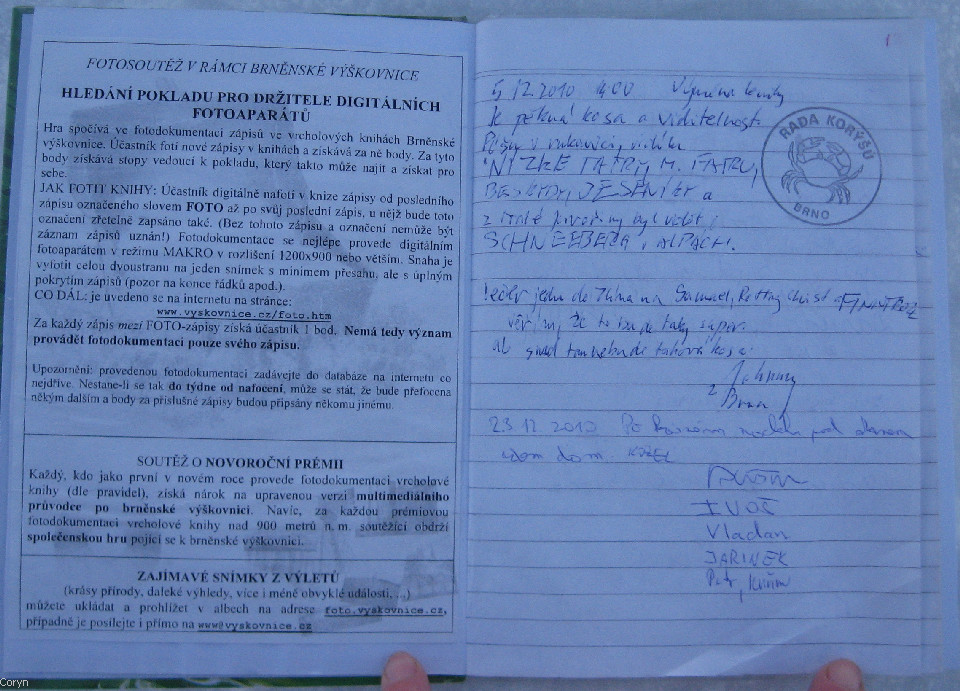 FOTOSOUTĚŽ V RÁMCI BRNĚNSKÉ VÝŠKOVNICE
HLEDÁNÍ POKLADU PRO DRŽITELE DIGITÁLNÍCH
FOTOAPARÁTŮ
Hra spočívá ve fotodokumentaci zápisů ve vrcholových knihách Brněnské
výškovnice. Účastník fotí nové zápisy v knihách a získává za ně body. Za tyto
body získává stopy vedoucí k pokladu, který takto může najít a získat pro
sebe.
JAK FOTIT KNIHY: Účastník digitálně nafotí v knize zápisy od posledního
zápisu označeného slovem FOTO až po svůj poslední zápis, u nějž bude toto
označení zřetelně zapsáno také. (Bez tohoto zápisu a označení nemůže být
záznam zápisů uznán!) Fotodokumentace se nejlépe provede digitálním
fotoaparátem v režimu MAKRO v rozlišení 1200x900 nebo větším. Snaha je
vyfotit celou dvoustranu na jeden snímek s minimem přesahu, ale s úplným
pokrytím zápisů (pozor na konce řádků apod.).
CO DÁL: je uvedeno se na internetu na stránce:
www.vyskovnice.cz/foto.htm
Za každý zápis mezi FOTO-zápisy získá účastník 1 bod. Nemá tedy význam
provádět fotodokumentaci pouze svého zápisu.
Upozornění: provedenou fotodokumentaci zadávejte do databáze na internetu co
nejdříve. Nestane-li se tak do týdne od nafocení, může se stát, že bude přefocena
někým dalším a body za příslušné zápisy budou připsány někomu jinému.
SOUTĚŽ O NOVOROČNÍ PRÉMII
Každý, kdo jako první v novém roce provede fotodokumentaci vrcholové
knihy (dle pravidel), získá nárok na upravenou verzi multimediálního
průvodce po brněnské výškovnici. Navíc, za každou prémiovou
fotodokumentaci vrcholové knihy nad 900 metrů n. m. soutěžící obdrží
společenskou hru pojící se k brněnské výškovnici.
ZAJÍMAVÉ SNÍMKY Z VÝLETŮ
(krásy přírody, daleké výhledy, více i méně obvyklé události, ...)
můžete ukládat a prohlížet v albech na adrese foto.vyskovnice.cz,
případně je posílejte i přímo na www@vyskovnice.cz
5.12.2010 14:00 Výměna knihy
Je pěkná kosa a viditelnost.
NÍZKÉ TATRY, M. FATRU,
BESKYDY, JESENÍKY a
byl vidět i
SCHNEEBERG, ALPÁCH.
jedu do Zlína na Samael, Rotting Christ a FINNTROLL
věřím, že to bude taky super.
ale snad tam nebude taková kosa.
Johnny
z Brna
RADA KORÝŠŮ
BRNO
23 12 2010 Po
jdem dom.
IVOŠ
Vladan
JARINEK
Petr,
Coryn